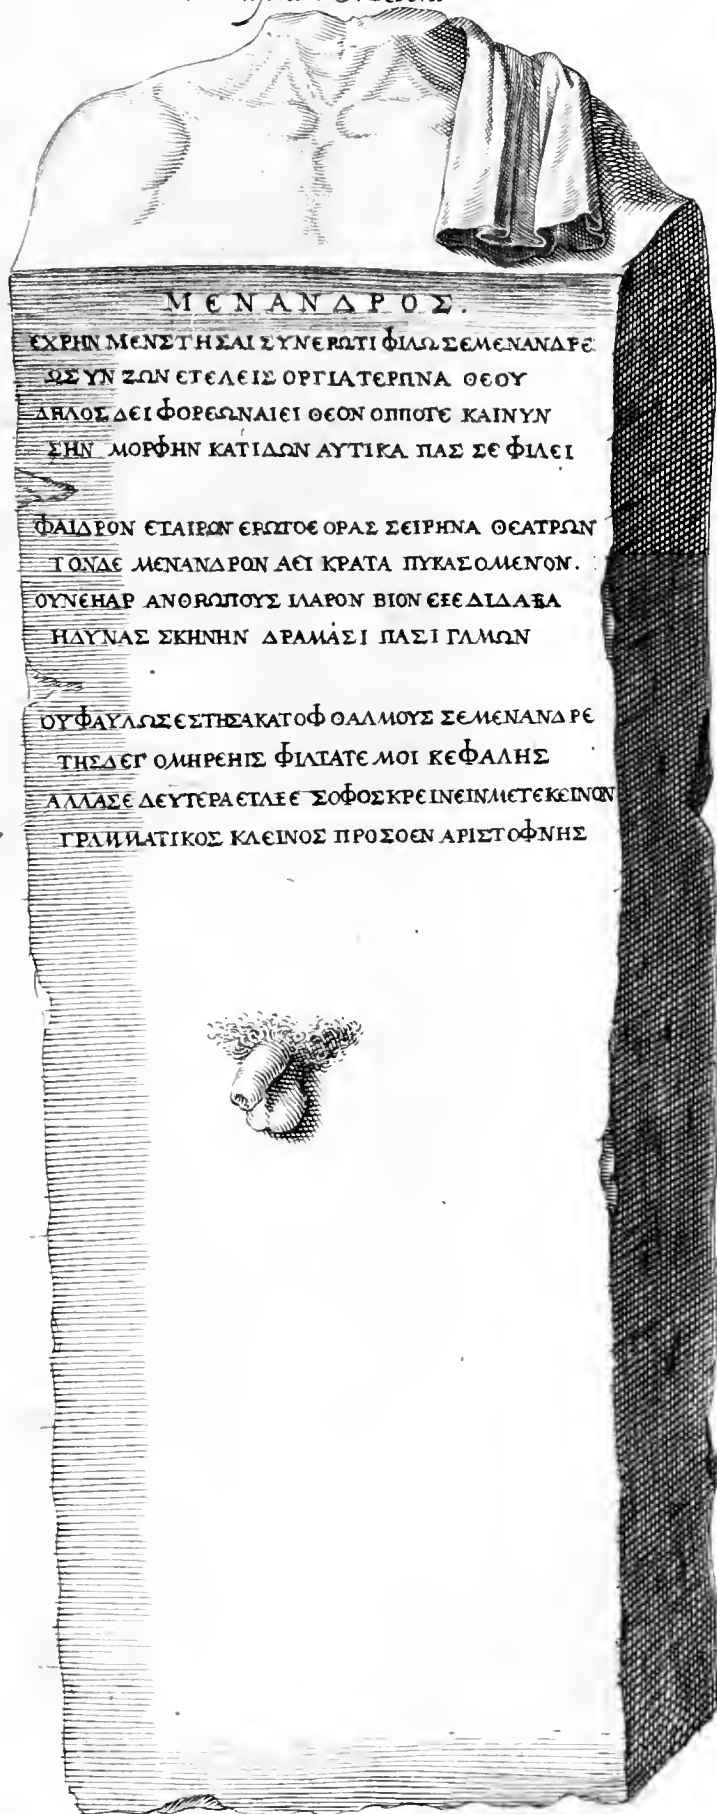 ΜЄΝΑΝΔΡΟΣ.
ЄΧΡΗΝ ΜЄΝΣΤΗΣΑΙ ΣΥΝЄΡΩΤΙ ΦΙΛΩ ΣЄΜЄΝΑΝΔΡЄ
ΩΣΥΝ ΖΩΝ ЄΤЄΛЄΙΣ ΟΡΓΙΑΤЄΡΠΝΑ ΘЄΟΥ
ΔΗΛΟΣ ΔЄΙ ΦΟΡЄΩΝΑΙЄΙ ΘЄΟΝ ΟΠΠΟΤЄ ΚΑΙΝΥΝ
ΣΗΝ ΜΟΡΦΗΝ ΚΑΤΙΔΩΝ ΑΥΤΙΚΑ ΠΑΣ ΣЄ ΦΙΛЄΙ
ΦΑΙΔΡΟΝ ЄΤΑΙΡΟΝ ЄΡΩΤΟЄ ΟΡΑΣ ΣЄΙΡΗΝΑ ΘЄΑΤΡΩΝ
ΤΟΝΔЄ ΜЄΝΑΝΔΡΟΝ ΑЄΙ ΚΡΑΤΑ ΠΥΚΑΣΟΜЄΝΟΝ.
ΟΥΝЄΗΑΡ ΑΝΘΡΩΠΟΥΣ ΙΛΑΡΟΝ ΒΙΟΝ ЄΞЄΔΙΔΑΞΑ
ΗΔΥΝΑΣ ΣΚΗΝΗΝ ΔΡΑΜΑΣΙ ΠΑΣΙ ΓΑΜΩΝ
ΟΥΦΑΥΛΩΣЄΣΤΗΣΑΚΑΤΟΦ ΘΑΛΜΟΥΣ ΣЄΜЄΝΑΝΔΡЄ
ΤΗΣΔЄΓ ΟΜΗΡЄΗΙΣ ΦΙΛΤΑΤЄ ΜΟΙ ΚЄΦΑΛΗΣ
ΑΛΛΑΣЄ ΔЄΥΤЄΡΑЄΤΑΞЄ ΣΟΦΟΣΚΡЄΙΝЄΙΝΜЄΤЄΚЄΙΝΟΝ
ΓΡΑΜΜΑΤΙΚΟΣ ΚΛЄΙΝΟΣ ΠΡΟΣΟЄΝ ΑΡΙΣΤΟΦΝΗΣ